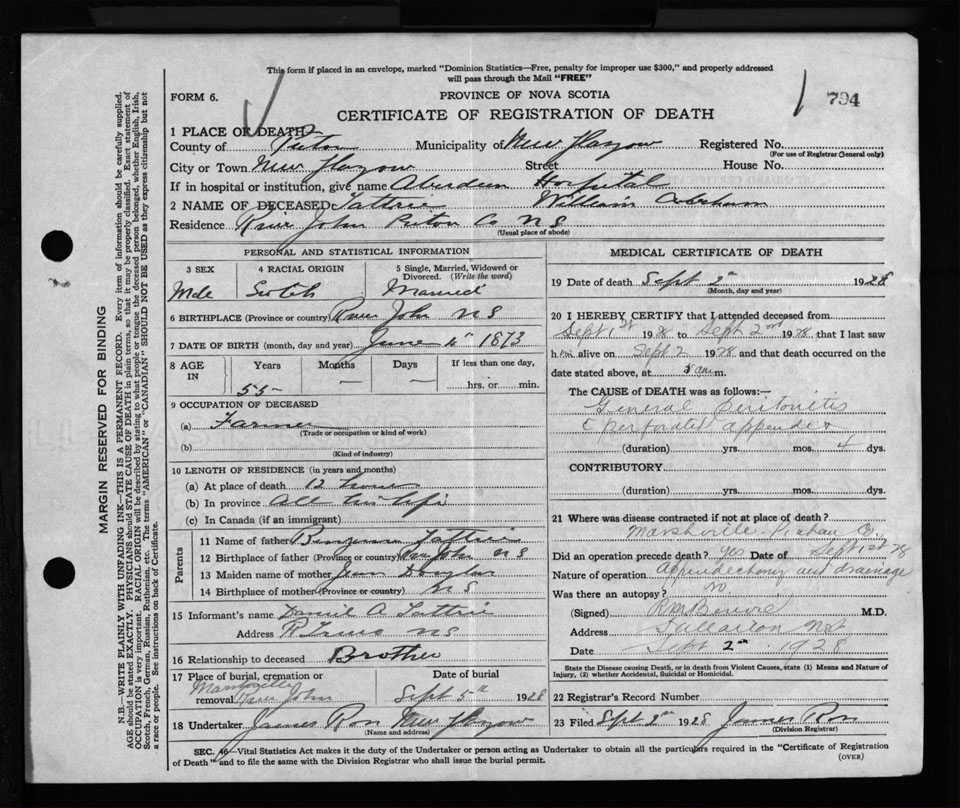 This form if placed in an envelope, marked "Dominion Statistics—Free, penalty for improper use $300," and properly addressed
will pass through the Mail "FREE"
FORM 6.
PROVINCE OF NOVA SCOTIA
794
CERTIFICATE OF REGISTRATION OF DEATH
1 PLACE OF DEATH—
County of Pictou Municipality of New Glasgow Registered No.
(For use of Registrar General only)
City or Town New Glasgow Street House No.
If in hospital or institution, give name Aberdeen Hospital
2 NAME OF DECEASED Tattrie William
Residence River John Pictou Co NS
(Usual place of abode)
PERSONAL AND STATISTICAL INFORMATION
3 SEX 4 RACIAL ORIGIN 5 Single, Married, Widowed or
Divorced. (Write the word)
Male Scotch Married
6 BIRTHPLACE (Province or country) River John NS
7 DATE OF BIRTH (month, day and year) June 1873
8 AGE IN Years Months Days If less than one day,
55 — — hrs. or min.
9 OCCUPATION OF DECEASED
(a) Farmer
(Trade or occupation or kind of work)
(b)
(Kind of industry)
10 LENGTH OF RESIDENCE (in years and months)
(a) At place of death 12 hours
(b) In province All his life
(c) In Canada (if an immigrant)
Parents
11 Name of father Benjamin Tattrie
12 Birthplace of father (Province or country) Riv John NS
13 Maiden name of mother Jean Douglas
14 Birthplace of mother (Province or country) NS
15 Informant's name Daniel A Tattrie
Address NS
16 Relationship to deceased Brother
17 Place of burial, cremation or
removal River John
Date of burial
Sept 5th 1928
18 Undertaker James Ross New Glasgow
(Name and address)
MEDICAL CERTIFICATE OF DEATH
19 Date of death Sept 2nd 1928
(Month, day and year)
20 I HEREBY CERTIFY that I attended deceased from
Sept 1st 1928 to Sept 2nd 1928, that I last saw
him alive on Sept 2 1928 and that death occurred on the
date stated above, at am.
The CAUSE of DEATH was as follows:—
General Peritonitis
c perforated appendix
(duration) yrs. mos. 4 dys.
CONTRIBUTORY
(duration) yrs. mos. dys.
21 Where was disease contracted if not at place of death?
Marshville, Pictou Co.
Did an operation precede death? Yes Date of Sept 1st 28
Nature of operation Appendectomy and drainage
Was there an autopsy? No
(Signed) M.D.
Address
Date Sept 2nd 1928
State the Disease causing Death, or in death from Violent Causes, state (1) Means and Nature of
Injury, (2) whether Accidental, Suicidal or Homicidal.
22 Registrar's Record Number
23 Filed Sept 2nd 1928 James Ross
(Division Registrar)
SEC. 46—Vital Statistics Act makes it the duty of the Undertaker or person acting as Undertaker to obtain all the particulars required in the "Certificate of Registration
of Death" and to file the same with the Division Registrar who shall issue the burial permit.
(OVER)
MARGIN RESERVED FOR BINDING
N.B.—WRITE PLAINLY WITH UNFADING INK—THIS IS A PERMANENT RECORD. Every item of information should be carefully supplied.
AGE should be stated EXACTLY. PHYSICIANS should STATE CAUSE OF DEATH in plain terms, so that it may be properly classified. Exact statement of
OCCUPATION is very important. RACIAL ORIGIN will be described by stating to what people or tongue the deceased person belonged, whether English, Irish,
Scotch, French, German, Russian, Ruthenian, etc. The terms "AMERICAN" or "CANADIAN" SHOULD NOT BE USED as they express citizenship but not
a race or people. See instructions on back of Certificate.